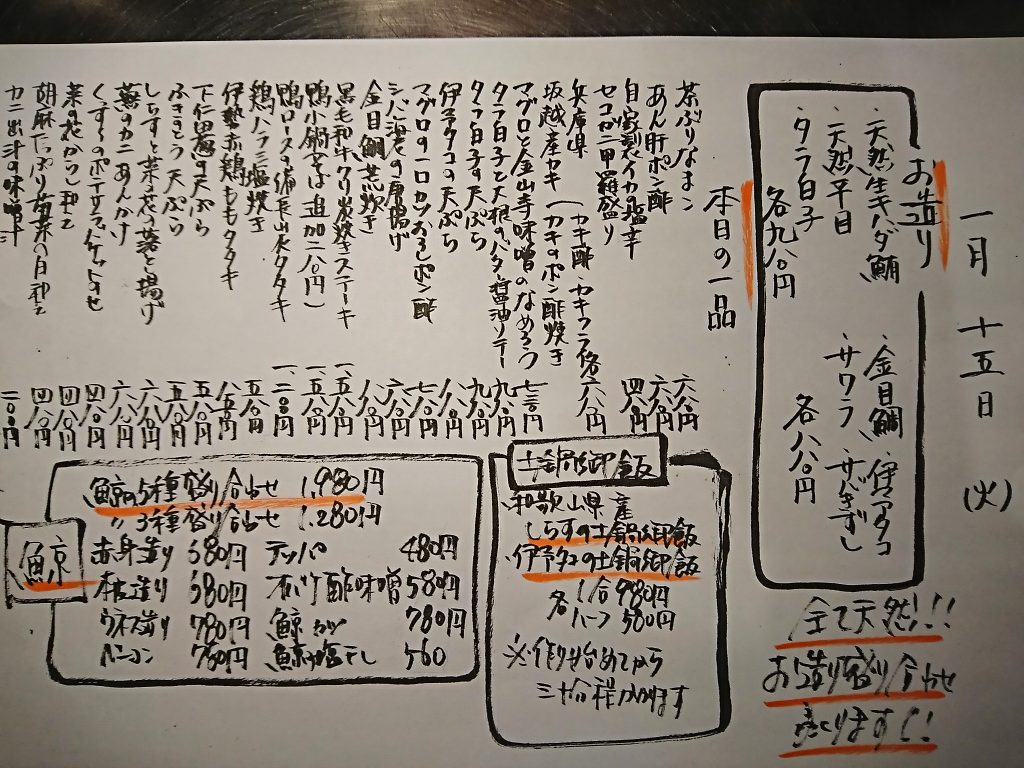 一月 十五日 (火)
お造り
・天然生キハダ鮪
・天然平目
・タラ白子
各九八〇円
・金目鯛 ・伊予タコ
・サワラ ・サバきずし
各八八〇円
全て天然!!
お造り盛り合わせ
本日の一品
茶ぶりなまこ 六八〇円
あん肝ポン酢 六八〇円
自家製イカの塩辛 四八〇円
セコガニ甲羅盛り
兵庫県
坂越産カキ (カキ酢・カキフライ 各六八〇円
カキのポン酢焼き
マグロと金山寺味噌のなめろう 七三〇円
タラ白子と大根のバター醤油ソテー 九八〇円
タラ白子の天ぷら 九八〇円
伊予タコの天ぷら 八八〇円
マグロの一口カツおろしポン酢 七八〇円
シバ海老の唐揚げ 六八〇円
金目鯛荒炊き 八八〇円
黒毛和牛クリ炭焼きステーキ 一、五八〇円
鴨小鍋(そば追加二八〇円) 一、五八〇円
鴨ロースの備長山水タタキ 一、二〇〇円
鶏ハラミ塩焼き 五八〇円
伊勢赤鶏ももタタキ 八五〇円
下仁田葱の天ぷら 五八〇円
ふきとう天ぷら 五八〇円
しらすと菜の花の落とし揚げ 六八〇円
蕪のカニあんかけ 六八〇円
くずしのポテサラ 四八〇円
菜の花からし和え 四八〇円
胡麻たっぷり 四八〇円
カニ出汁の味噌汁 二〇〇円
土鍋御飯
・和歌山県産
しらすの土鍋御飯
・伊予タコの土鍋御飯
各 1合 980円
ハーフ 580円
※作り始めてから
三十分程かかります
鯨
鯨の5種盛り合わせ 1,980円
〃 3種盛り合わせ 1,280円
赤身造り 580円 テッパ 480円
本皮造り 580円 オバケ酢味噌 580円
ウネス造り 780円 鯨カツ 780円
ベーコン 780円 鯨の塩干し 560